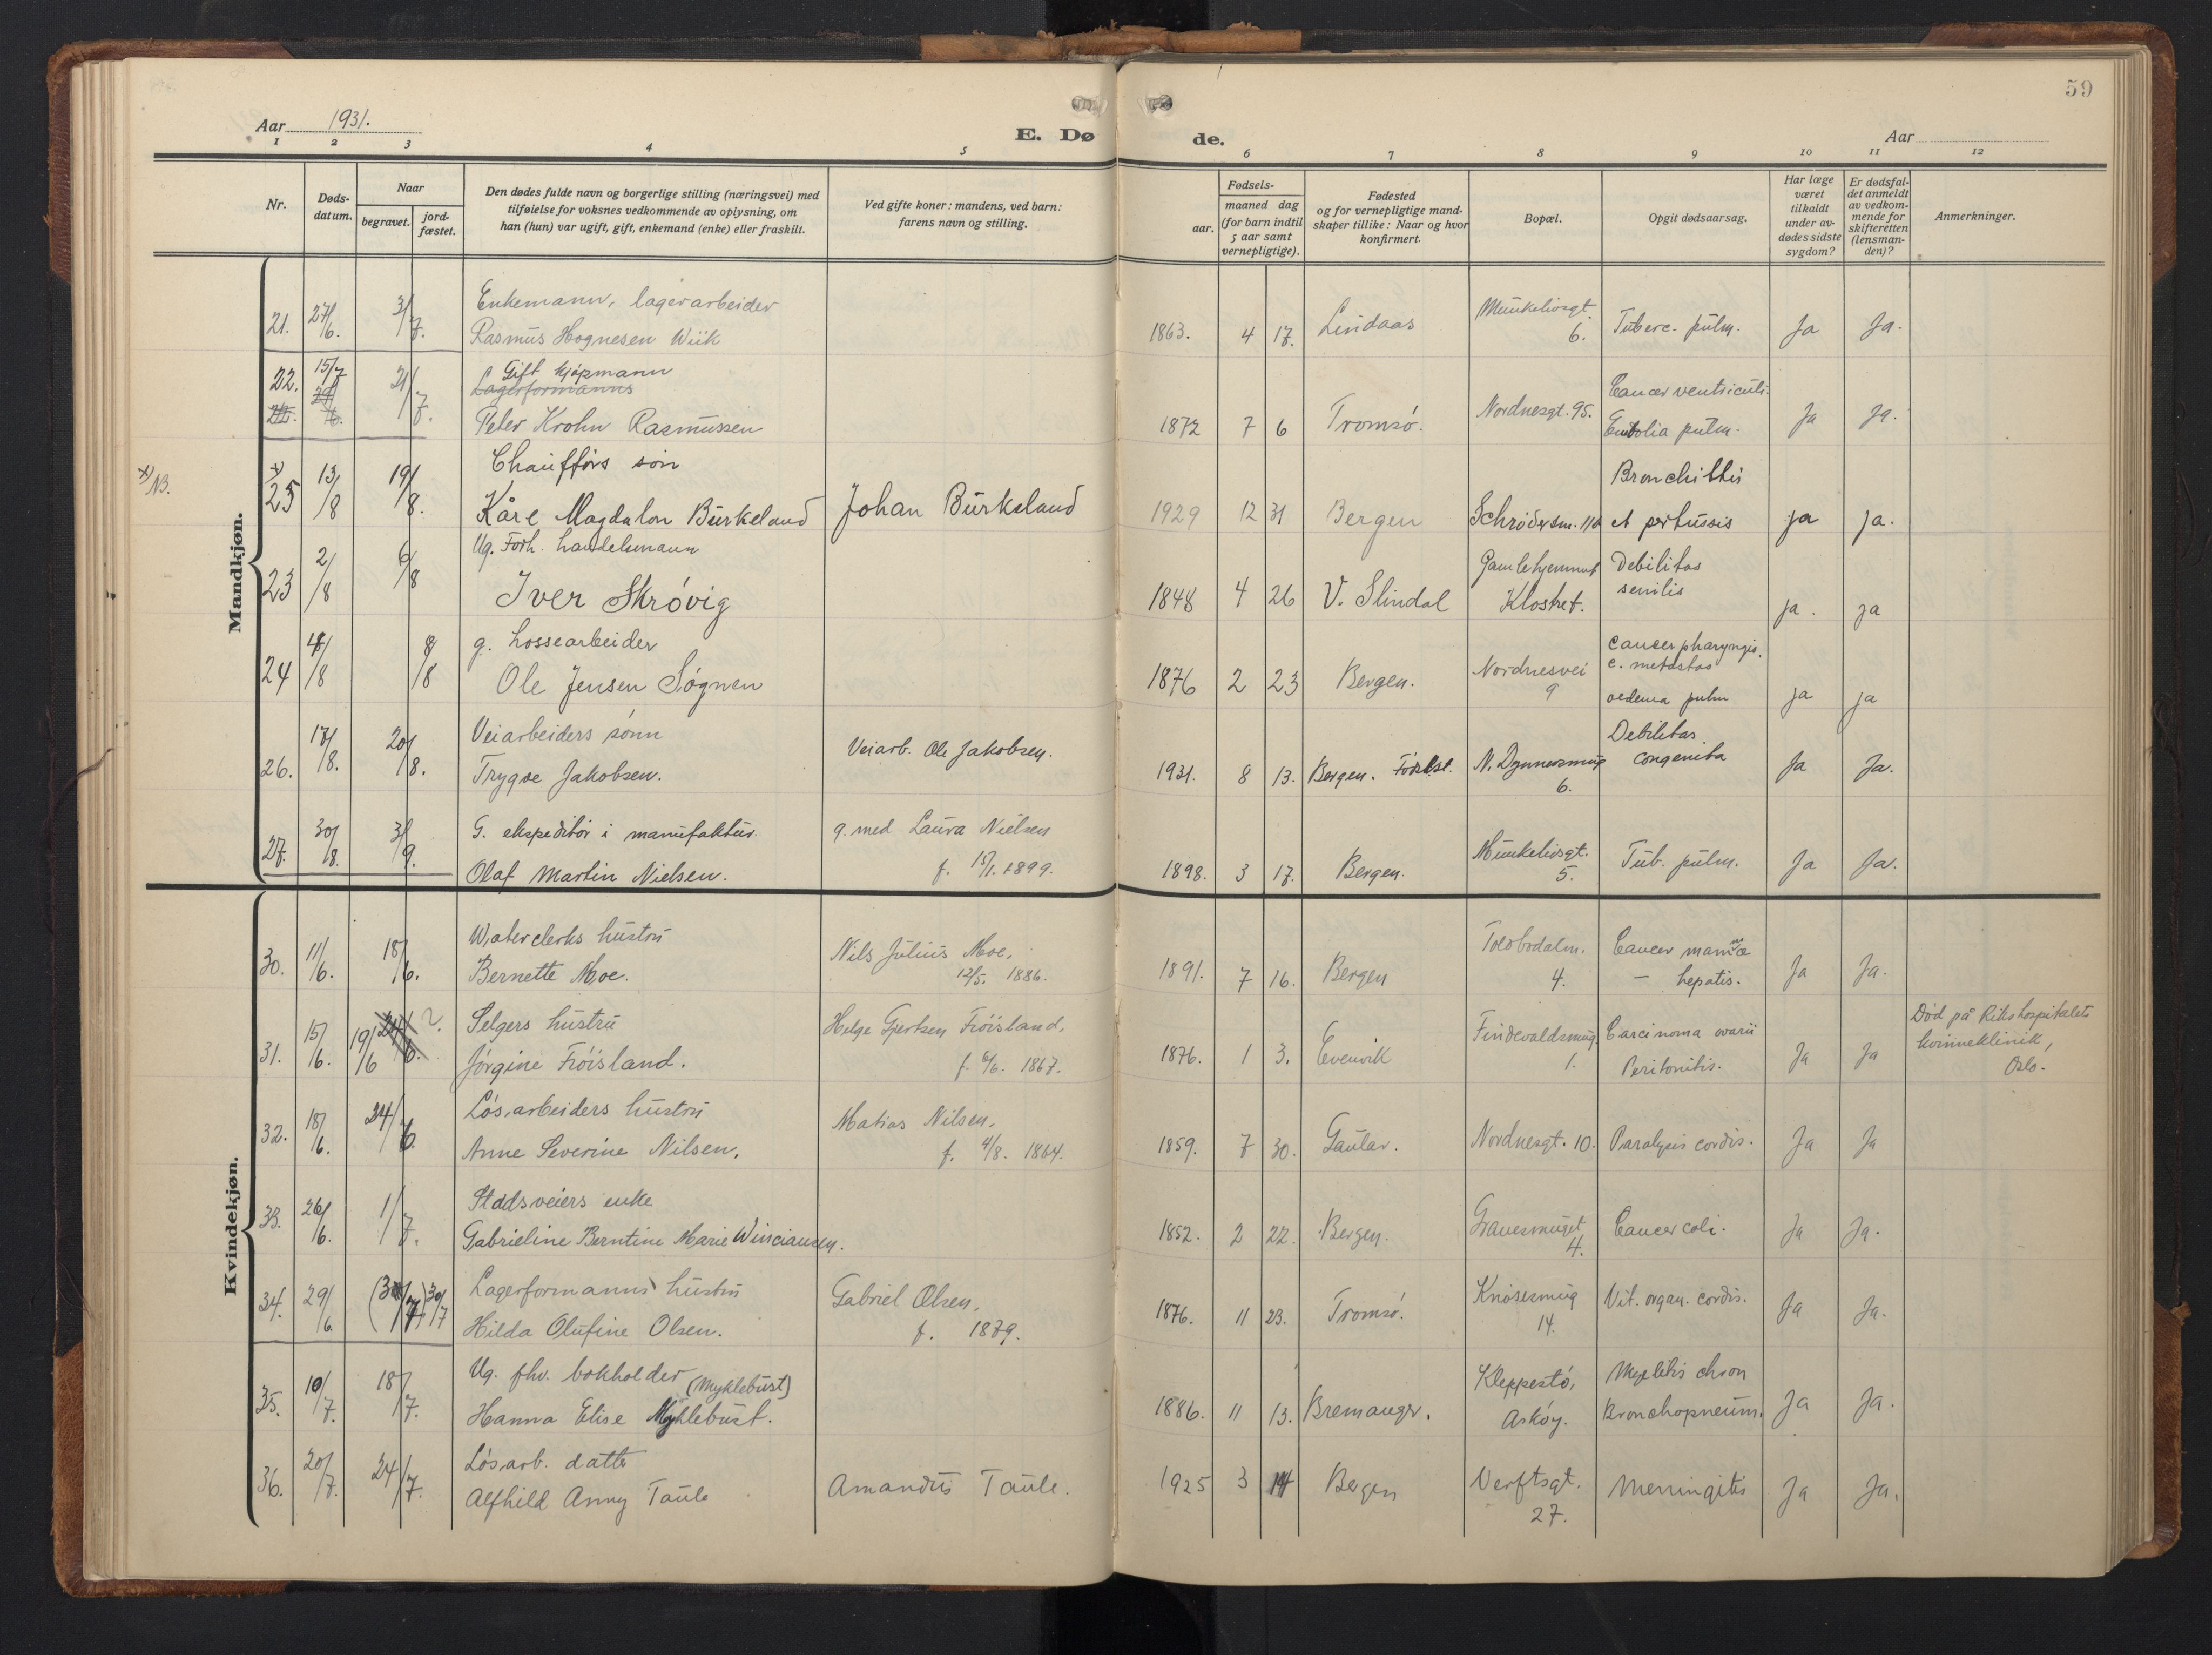 59
Aar 1931.
E. Dø de.
Aar
1 2 3 4 5 6 7 8 9 10 11 12
Nr.
Døds-
datum.
Naar
begravet.
jord-
fæstet.
Den dødes fulde navn og borgerlige stilling (næringsvei) med
tilføielse for voksnes vedkommende av oplysning, om
han (hun) var ugift, gift, enkemand (enke) eller fraskilt.
Ved gifte koner: mandens, ved barn:
farens navn og stilling.
Fødsels-
aar.
maaned dag
(for barn indtil
5 aar samt
vernepligtige).
Fødested
og for vernepligtige mand-
skaper tillike: Naar og hvor
konfirmert.
Bopæl.
Opgit dødsaarsag.
Har læge
været
tilkaldt
under av-
dødes sidste
sygdom?
Er dødsfal-
det anmeldt
av vedkom-
mende for
skifteretten
(lensman-
den)?
Anmerkninger.
Mandkjøn.
Enkemann, lagerarbeider
21. 27/6. 3/7. Rasmus Hognesen Wiik 1863. 4 17. Lindaas Munkelivsgt. 6. Tuberc. pulm. Ja Ja.
Gift kjøpmann
Lagerformanns
22. 15/7 21/7. Peter Krohn Rasmussen 1872 7 6 Tromsø. Nordnesgt. 95. Cancer ventriculi. Embolia pulm. Ja Ja.
x) NB.
Chaufførs søn
x) 25 13/8 19/8. Kåre Magdalon Burkeland Johan Burkeland 1929 12 31 Bergen Schrødersm. Bronchittis et pertussis ja ja.
Ug. Forh. handelsmann
23 2/8 6/8 Iver Skrøvig 1848 4 26 V. Slindal Gamlehjemmet Klostret. Debilitas senilis ja. ja
g. Lossearbeider
24 4/8 8/8 Ole Jensen Søgnen 1876 2 23 Bergen. Nordnesvei 9 cancer pharyngis. c. metastas oedema pulm ja ja
Veiarbeiders sønn
26. 17/8. 20/8. Trygve Jakobsen. Veiarb. Ole Jakobsen. 1931. 8 13. Bergen. Fødselst. N. Dynnersmug 6. Debilitas congenita Ja Ja.
G. ekspeditør i manufaktur.
27. 30/8. 3/9. Olaf Martin Nielsen. g. med Laura Nielsen f. 15/1. 1899. 1898. 3 17. Bergen. Munkelivsgt. 5. Tub. pulm. Ja Ja.
Kvindekjøn.
Waterclerks hustru
30. 11/6. 18/6. Bernette Moe. Nils Julius Moe. 12/5. 1886. 1891. 7 16. Bergen Tolbodalm. 4. Cancer mammæ – hepatis. Ja Ja.
Selgers hustru
31. 15/6. 19/6 24/6. Jørgine Frøisland. Helge Gjertsen Frøisland. f. 6/6. 1867. 1876. 1 3. Evenvik Findevaldsmug. 1. Carcinoma ovarii Peritonitis. Ja Ja Død på Rikshospitalets kvinneklinik, Oslo.
Løsarbeiders hustru
32. 18/6. 24/6 Anne Severine Nilsen. Matias Nilsen. f. 4/8. 1864. 1859. 7 30. Gaular. Nordnesgt. 10. Paralysis cordis. Ja Ja
Stadsveiers enke
33. 26/6. 1/7. Gabrieline Berntine Marie Winciansen. 1852. 2 22. Bergen. Grauesmuget 4. Cancer coli. Ja Ja.
Lagerformanns hustru
34. 29/6 30/7 Hilda Olufine Olsen. Gabriel Olsen. f. 1879. 1876. 11 23. Tromsø. Knøsesmug 14. Vit. organ. cordis. Ja Ja.
Ug. fhv. bokholder (Myklebust)
35. 10/7. 18/7. Hanna Elise Myklebust. 1886. 11 13. Bremanger. Kleppestø, Askøy. Myelitis chron Bronchopneum. Ja Ja.
Løsarb. datter
36. 20/7. 24/7. Alfhild Anny Taule Amandus Taule. 1925 3 14 Bergen Verftsgt. 27. Meningitis Ja Ja.